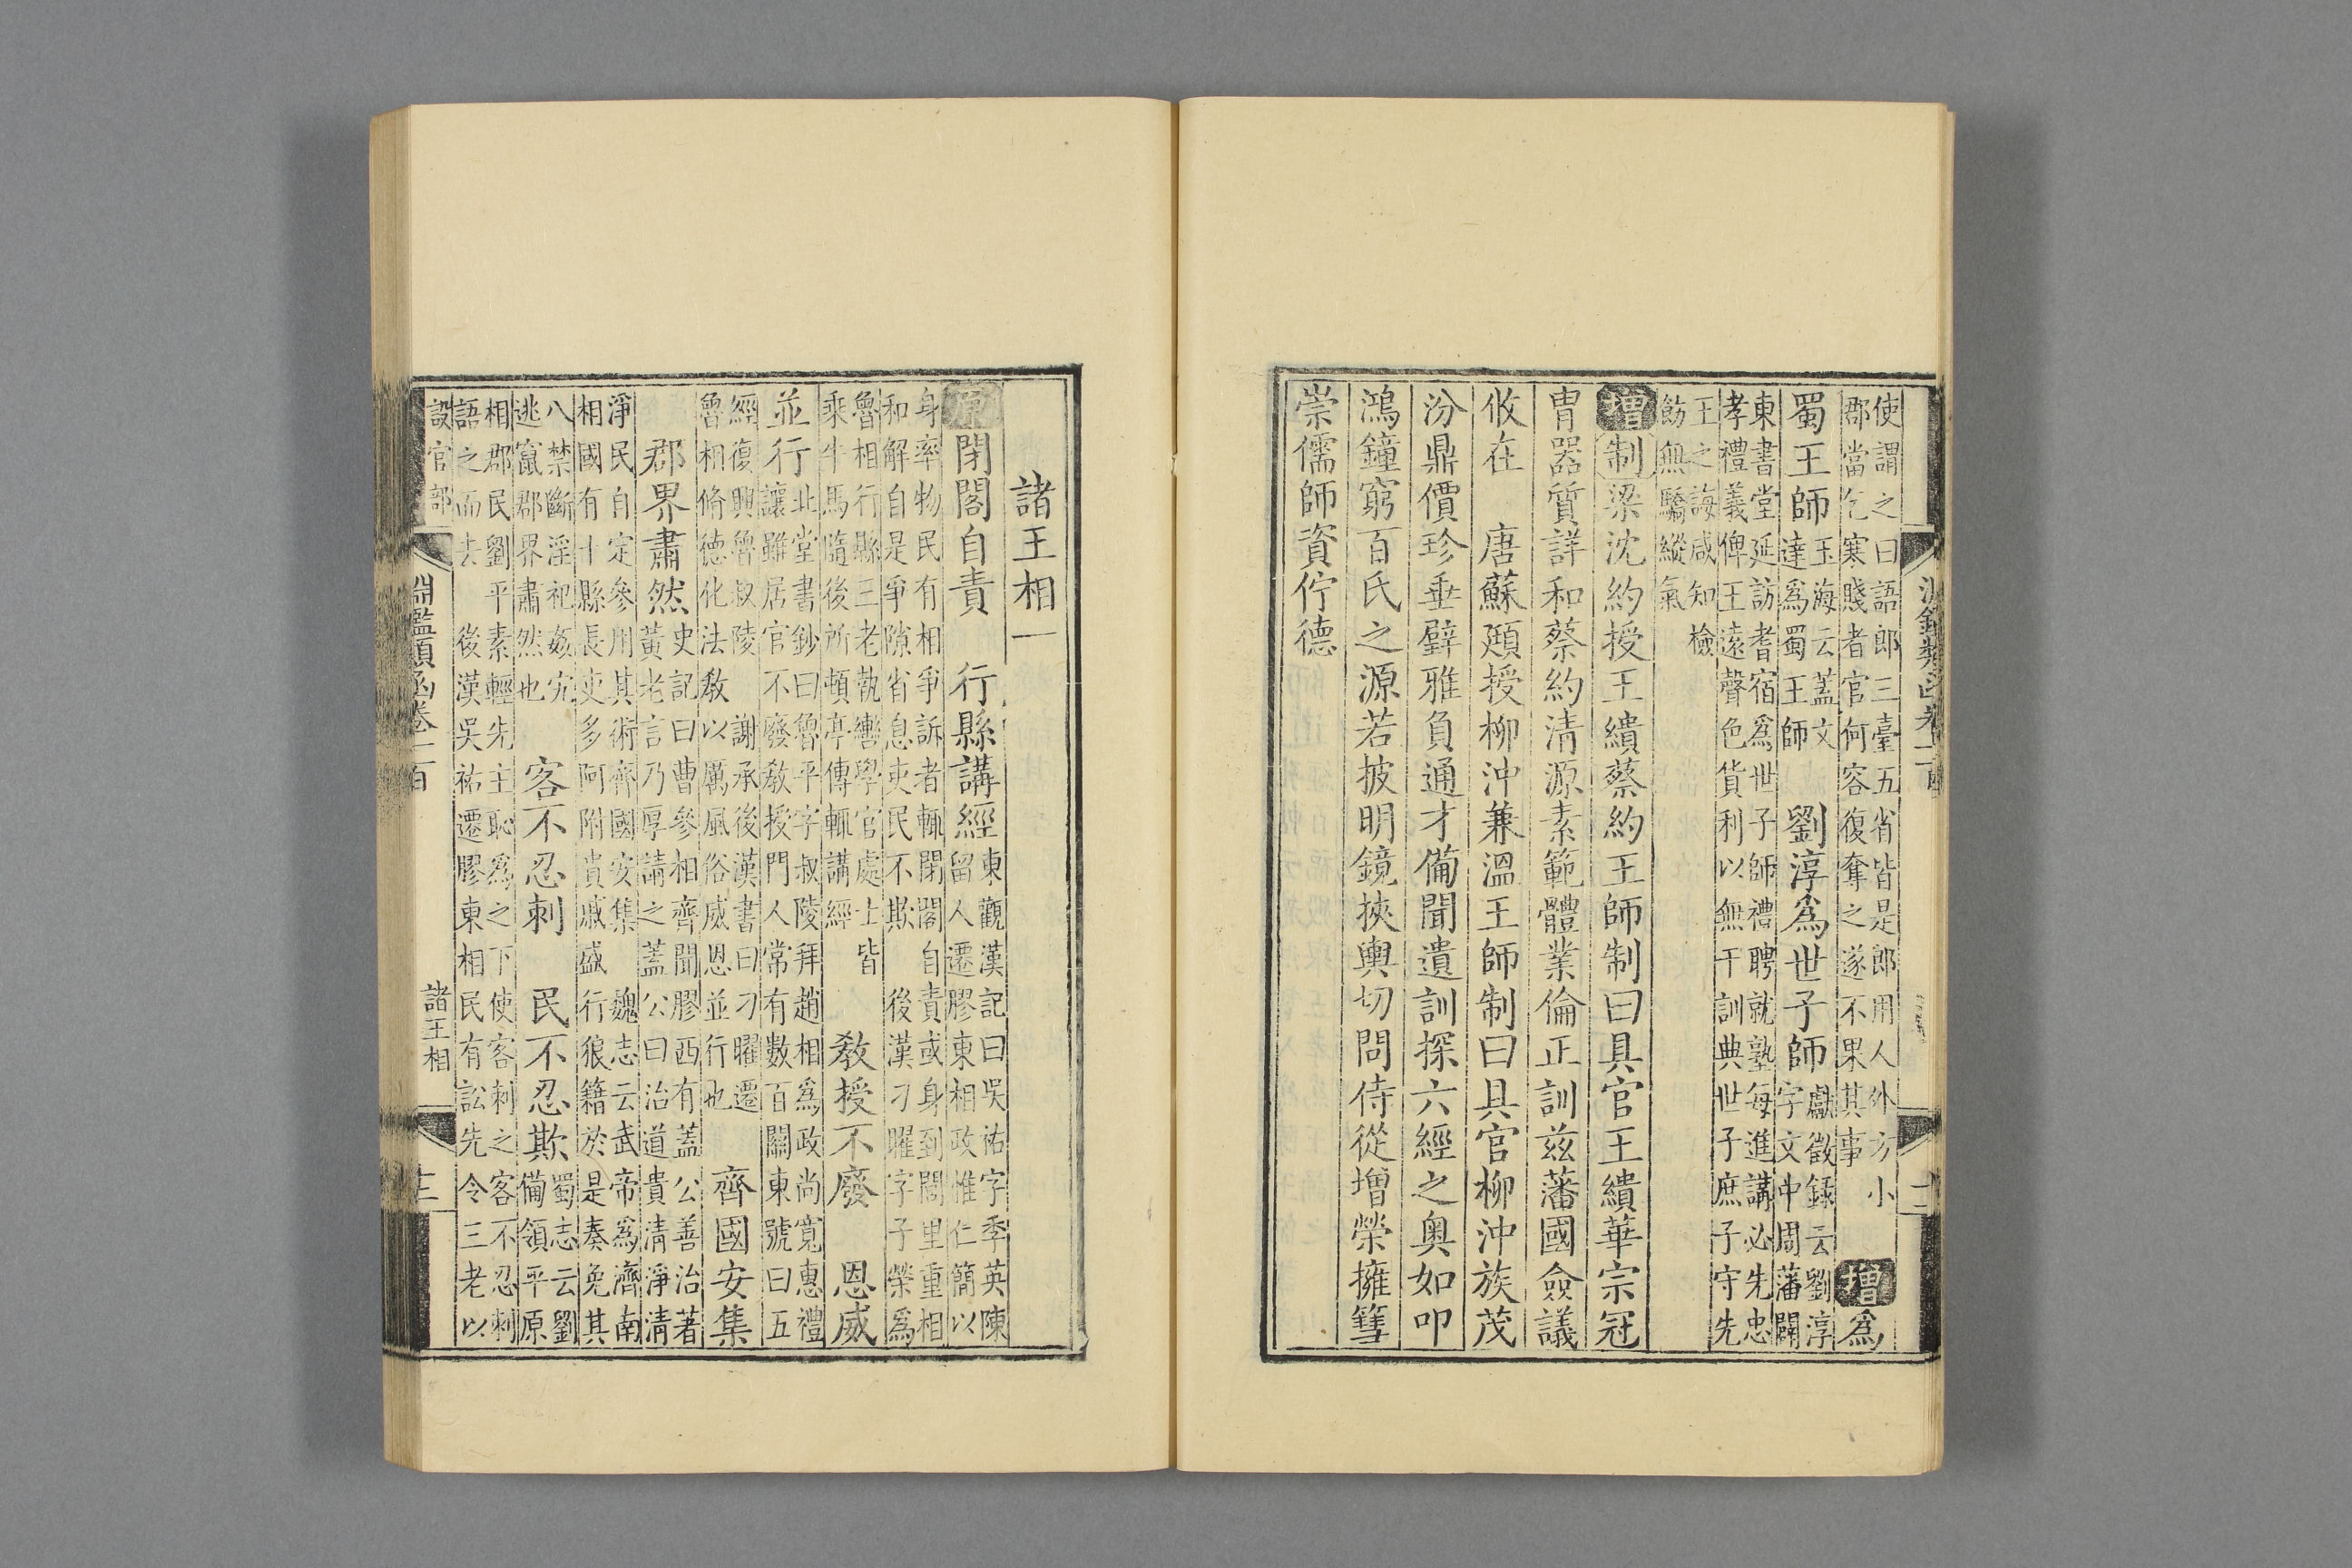 使謂之曰語郎三臺五省皆是郎用人外方小
郡當乞寒賤者官何容復奪之遂不果其事
增爲
蜀王師
玉海云蓋文
達爲蜀王師
劉淳爲世子師
獻徵録云劉淳
字文中周藩闢
東書堂延訪耆宿爲世子師禮聘就塾每進講必先忠
孝禮義俾王遠聲色貨利以無干訓典世子庶子守先
王之誨咸知檢
飭無驕縱氣
增制梁沈約授王繢蔡約王師制曰具官王繢華宗冠
冑器質詳和蔡約清源素範體業倫正訓兹藩國僉議
攸在 唐蘇頲授柳沖兼溫王師制曰具官柳沖族茂
汾鼎價珍垂璧雅負通才備聞遺訓探六經之奥如叩
鴻鐘窮百氏之源若披明鏡挾輿切問侍從增榮擁篲
崇儒師資佇德
諸王相一
原閉閣自責 行縣講經
東觀漢記曰吳祐字季英陳
留人遷膠東相政惟仁簡以
身率物民有相爭訴者輒閉閣自責或身到閭里重相
和解自是爭隙省息吏民不欺
後漢刁曜字子榮爲
魯相行縣三老執轡學官處士皆
乘牛馬隨後所頓亭傳輒講經
教授不廢 恩威
並行
北堂書鈔曰魯平字叔陵拜趙相爲政尚寬惠禮
讓雖居官不廢敎授門人常有數百關東號曰五
經復興魯叔陵
謝承後漢書曰刁曜遷
魯相脩德化法敎以厲風俗威恩並行也
齊國安集
郡界肅然
史記曰曹參相齊聞膠西有蓋公善治著
黃老言乃厚請之蓋公曰治道貴清淨清
淨民自定參用其術齊國安集
魏志云武帝爲濟南
相國有十縣長吏多阿附貴戚盛行狼籍於是奏免其
八禁斷淫祀姦宄
逃竄郡界肅然也
客不忍刺 民不忍欺
蜀志云劉
備領平原
相郡民劉平素輕先主恥爲之下使客刺之客不忍刺
語之而去
後漢吳祐遷膠東相民有訟先令三老以
設官部
淵鑑類函卷一百
諸王相